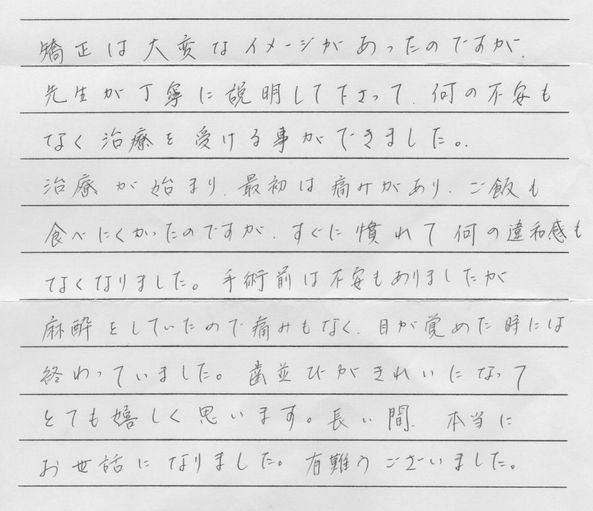 矯正は大変なイメージがあったのですが、
先生が丁寧に説明して下さって、何の不安も
なく治療を受ける事ができました。
治療が始まり、最初は痛みがあり、ご飯も
食べにくかったのですが、すぐに慣れて何の違和感も
なくなりました。手術前は不安もありましたが
麻酔をしていたので痛みもなく、目が覚めた時には
終わっていました。歯並びがきれいになって
とても嬉しく思います。長い間、本当に
お世話になりました。有難うございました。